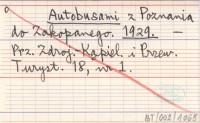 Autobusami z Poznania
do Zakopanego. 1929. —
Prz. Zdroj. Kąpiel. i Przew.
Turyst. 18, nr 1.
BT/002/1065